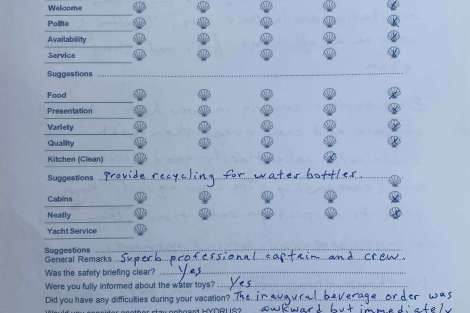 Welcome
Polite
Availability
Service
Suggestions
Food
Presentation
Variety
Quality
Kitchen (Clean)
Suggestions Provide recycling for water bottles.
Cabins
Neatly
Yacht Service
Suggestions
General Remarks Superb professional captain and crew.
Was the safety briefing clear? Yes
Were you fully informed about the water toys? Yes
Did you have any difficulties during your vacation? The inaugural beverage order was
Would you consider another stay onboard HYDRUS? awkward but immediately